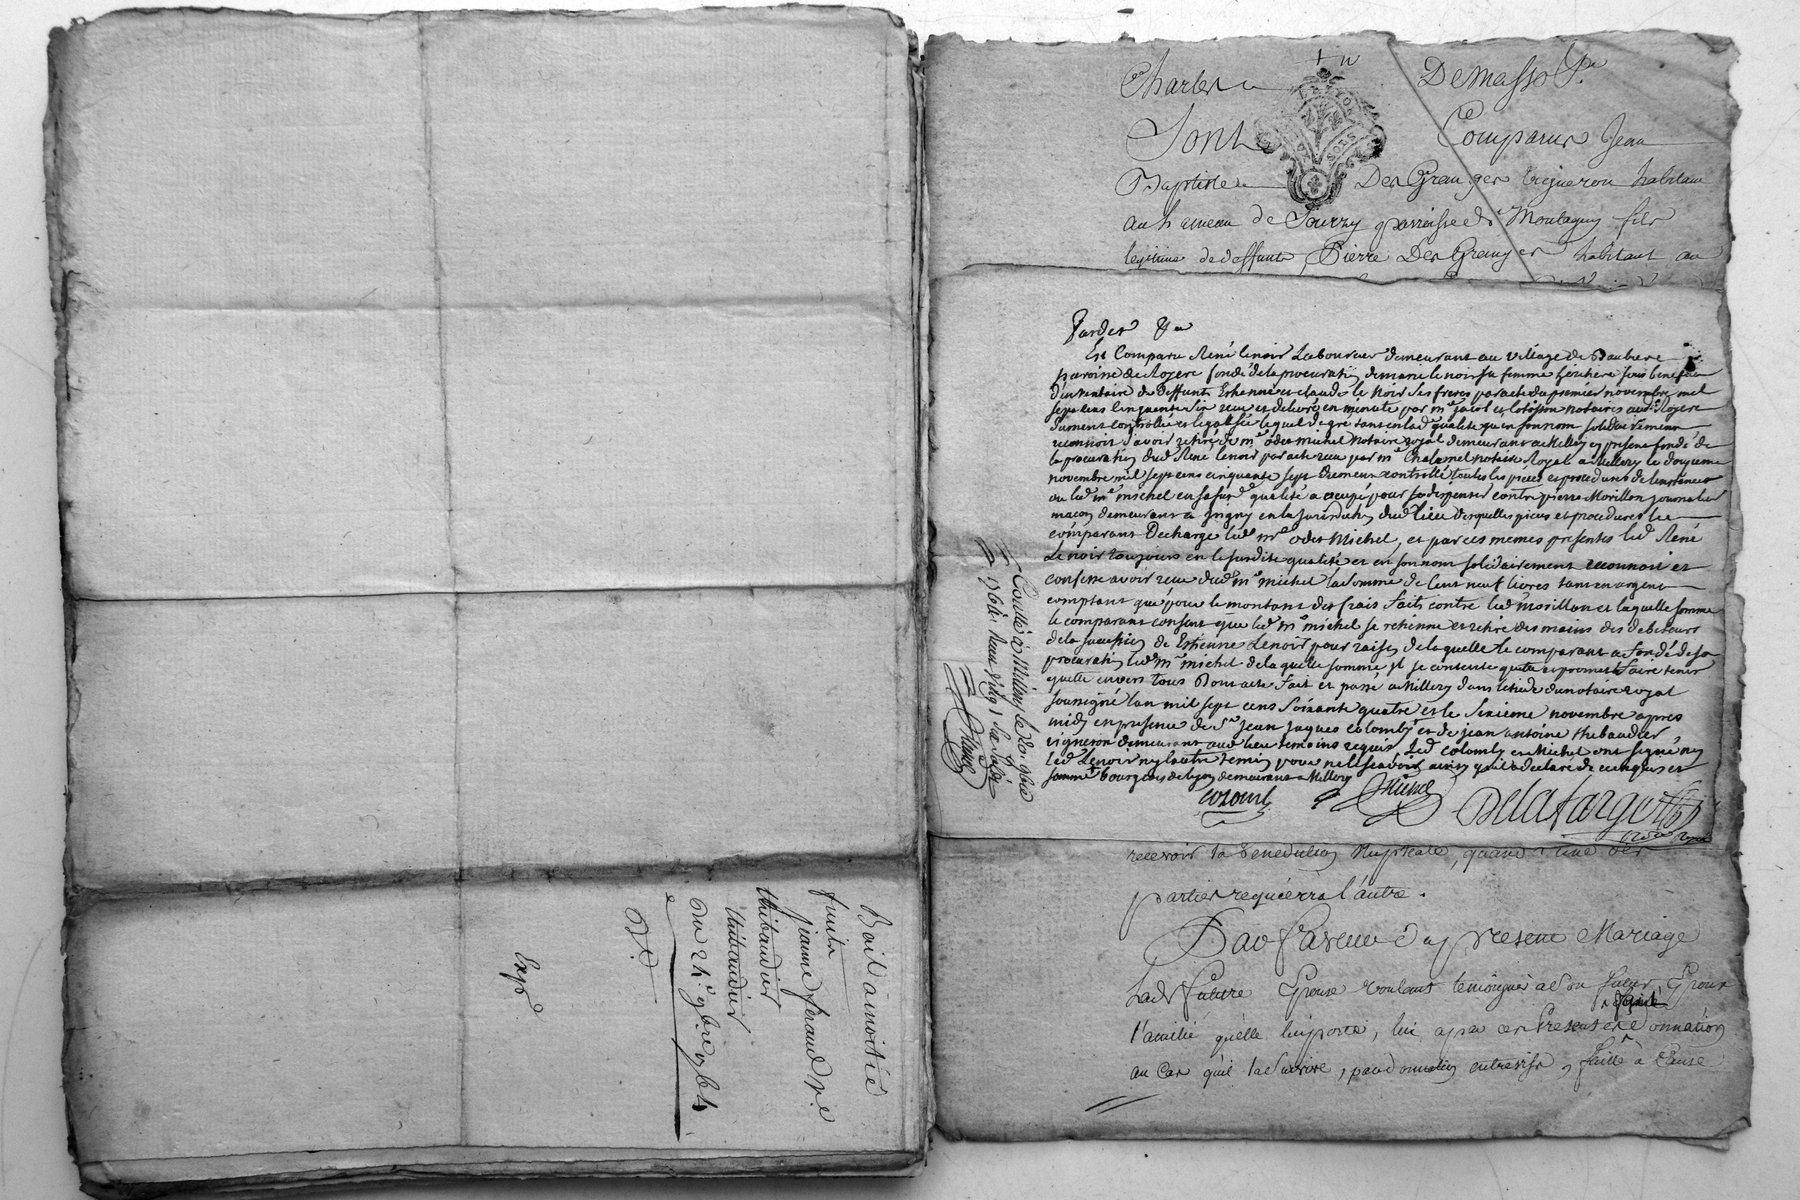 Bail à moitié
fruits
jeanne feraud v.e
thibaudier
thibaudier
du 24e 9bre 1764
Expd
Charles Demasso Pe
Sont Comparus Jean
Baptiste Des Granges vigneron habitant
au hameau de Sourzy parroisse de Montagny fils
legitime de deffunt Pierre Des Granges habitant au
Pardev &a
Est Comparu René lenoir Laboureur demeurant au village de
paroisse de Royere fondé de la procuration de marie le noir sa femme heritiere sous benefice
d'inventaire de deffunts Estienne et claude le Noir ses freres par acte du premier novembre mil
sept cens cinquante six receu et delivré en minute par me jacob et notaires aud. Royere
duement controllée et legalisée lequel de gré tant en lad. qualité qu'en son nom solidairement
reconnoit d'avoir retiré de me odet michel notaire royal demeurant a Millery cy present fondé de
la procuration dud. René lenoir par acte receu par me Chalamel notaire Royal a Millery le douzieme
novembre mil sept cens cinquante sept duement controllé toutes les pieces et procedures de
ou led. me michel en sa susd. qualité a occupé pour contre pierre Morillon journalier
maçon demeurant a Grigny en la juridiction dud. lieu desquelles pieces et procedures le
comparant Decharge led. me odet Michel, et par ces memes presentes led. René
Lenoir toujours en la susdite qualité et en son nom solidairement reconnoit et
confesse avoir receu dud. me michel la somme de cent neuf livres tant en argent
comptant que pour le montant des frais faits contre led. morillon et laquelle somme
le comparant consent que led. me michel se retienne et retire des mains des debiteurs
de la succession de Estienne Lenoir pour raison de laquelle le comparant a fondé de sa
procuration led. me michel de laquelle somme il se contente quitte et promet faire tenir
quitte envers tous Dont acte fait et passé a Millery dans l'etude du notaire royal
soussigné l'an mil sept cens soixante quatre et le sixieme novembre apres
midy en presence de sr jean jaques colomby et de jean antoine thibaudier,
vigneron demeurant aud. lieu temoins requis Led. colomby et Michel ont signé ny
led. Lenoir ny l'autre temoin pour ne le sçavoir ainsy qu'il a declaré de ce enquis et
sommé bourgeois de lyon demeurant a Millery
colomb Michel Delafarge
no.re Royal
Contllé à Millery le 9bre
1764 Reçu
recevoir la Benediction Nuptiale, quand l'une des
parties requierra l'autre.
En Faveur du present Mariage
Lad. Future Epouse voulant temoigner a son futur Epoux
l'amitié qu'elle luy porte, lui a par ces Presentes donnation
au cas qu'il la survive, par donnation entrevifs, faitte à cause